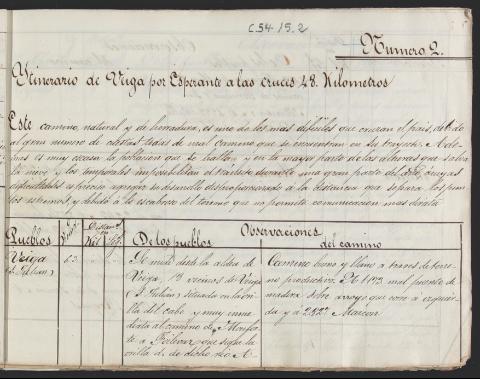 C.54-15.2
Numero 2.
Ytinerario de Veiga por Esperante a las cruces 48. Kilometros
Este camino, natural y de herradura, es uno de los mas dificiles que cruzan el pais, debido
al gran numero de cuestas todas de mal camino que se encuentran en su trayecto. Ade-
mas es muy escasa la poblacion que se halla, y en la mayor parte de las alturas que salva
la nieve y los temporales imposibilitan el transito durante una gran parte del año, cuyas
es preciso agregar
los estremos, y debido a lo escabroso del terreno que no permite comunicacion mas directa
Observaciones
Pueblos
Kil.
De los pueblos
del camino
Veiga
(S. Julian)
63
Se mide desde la aldea de
Veiga, 13 vecinos de Veiga
(S. Julian) situada en la ori-
lla del cabe y muy inme-
diata al camino de Monfor-
te a que sigue la
orilla d. de dicho rio A-
Camino bueno y llano a traves de terre-
no productivo. A 1193 mal puente de
madera sobre arroyo que corre a izquier-
da y á 2427